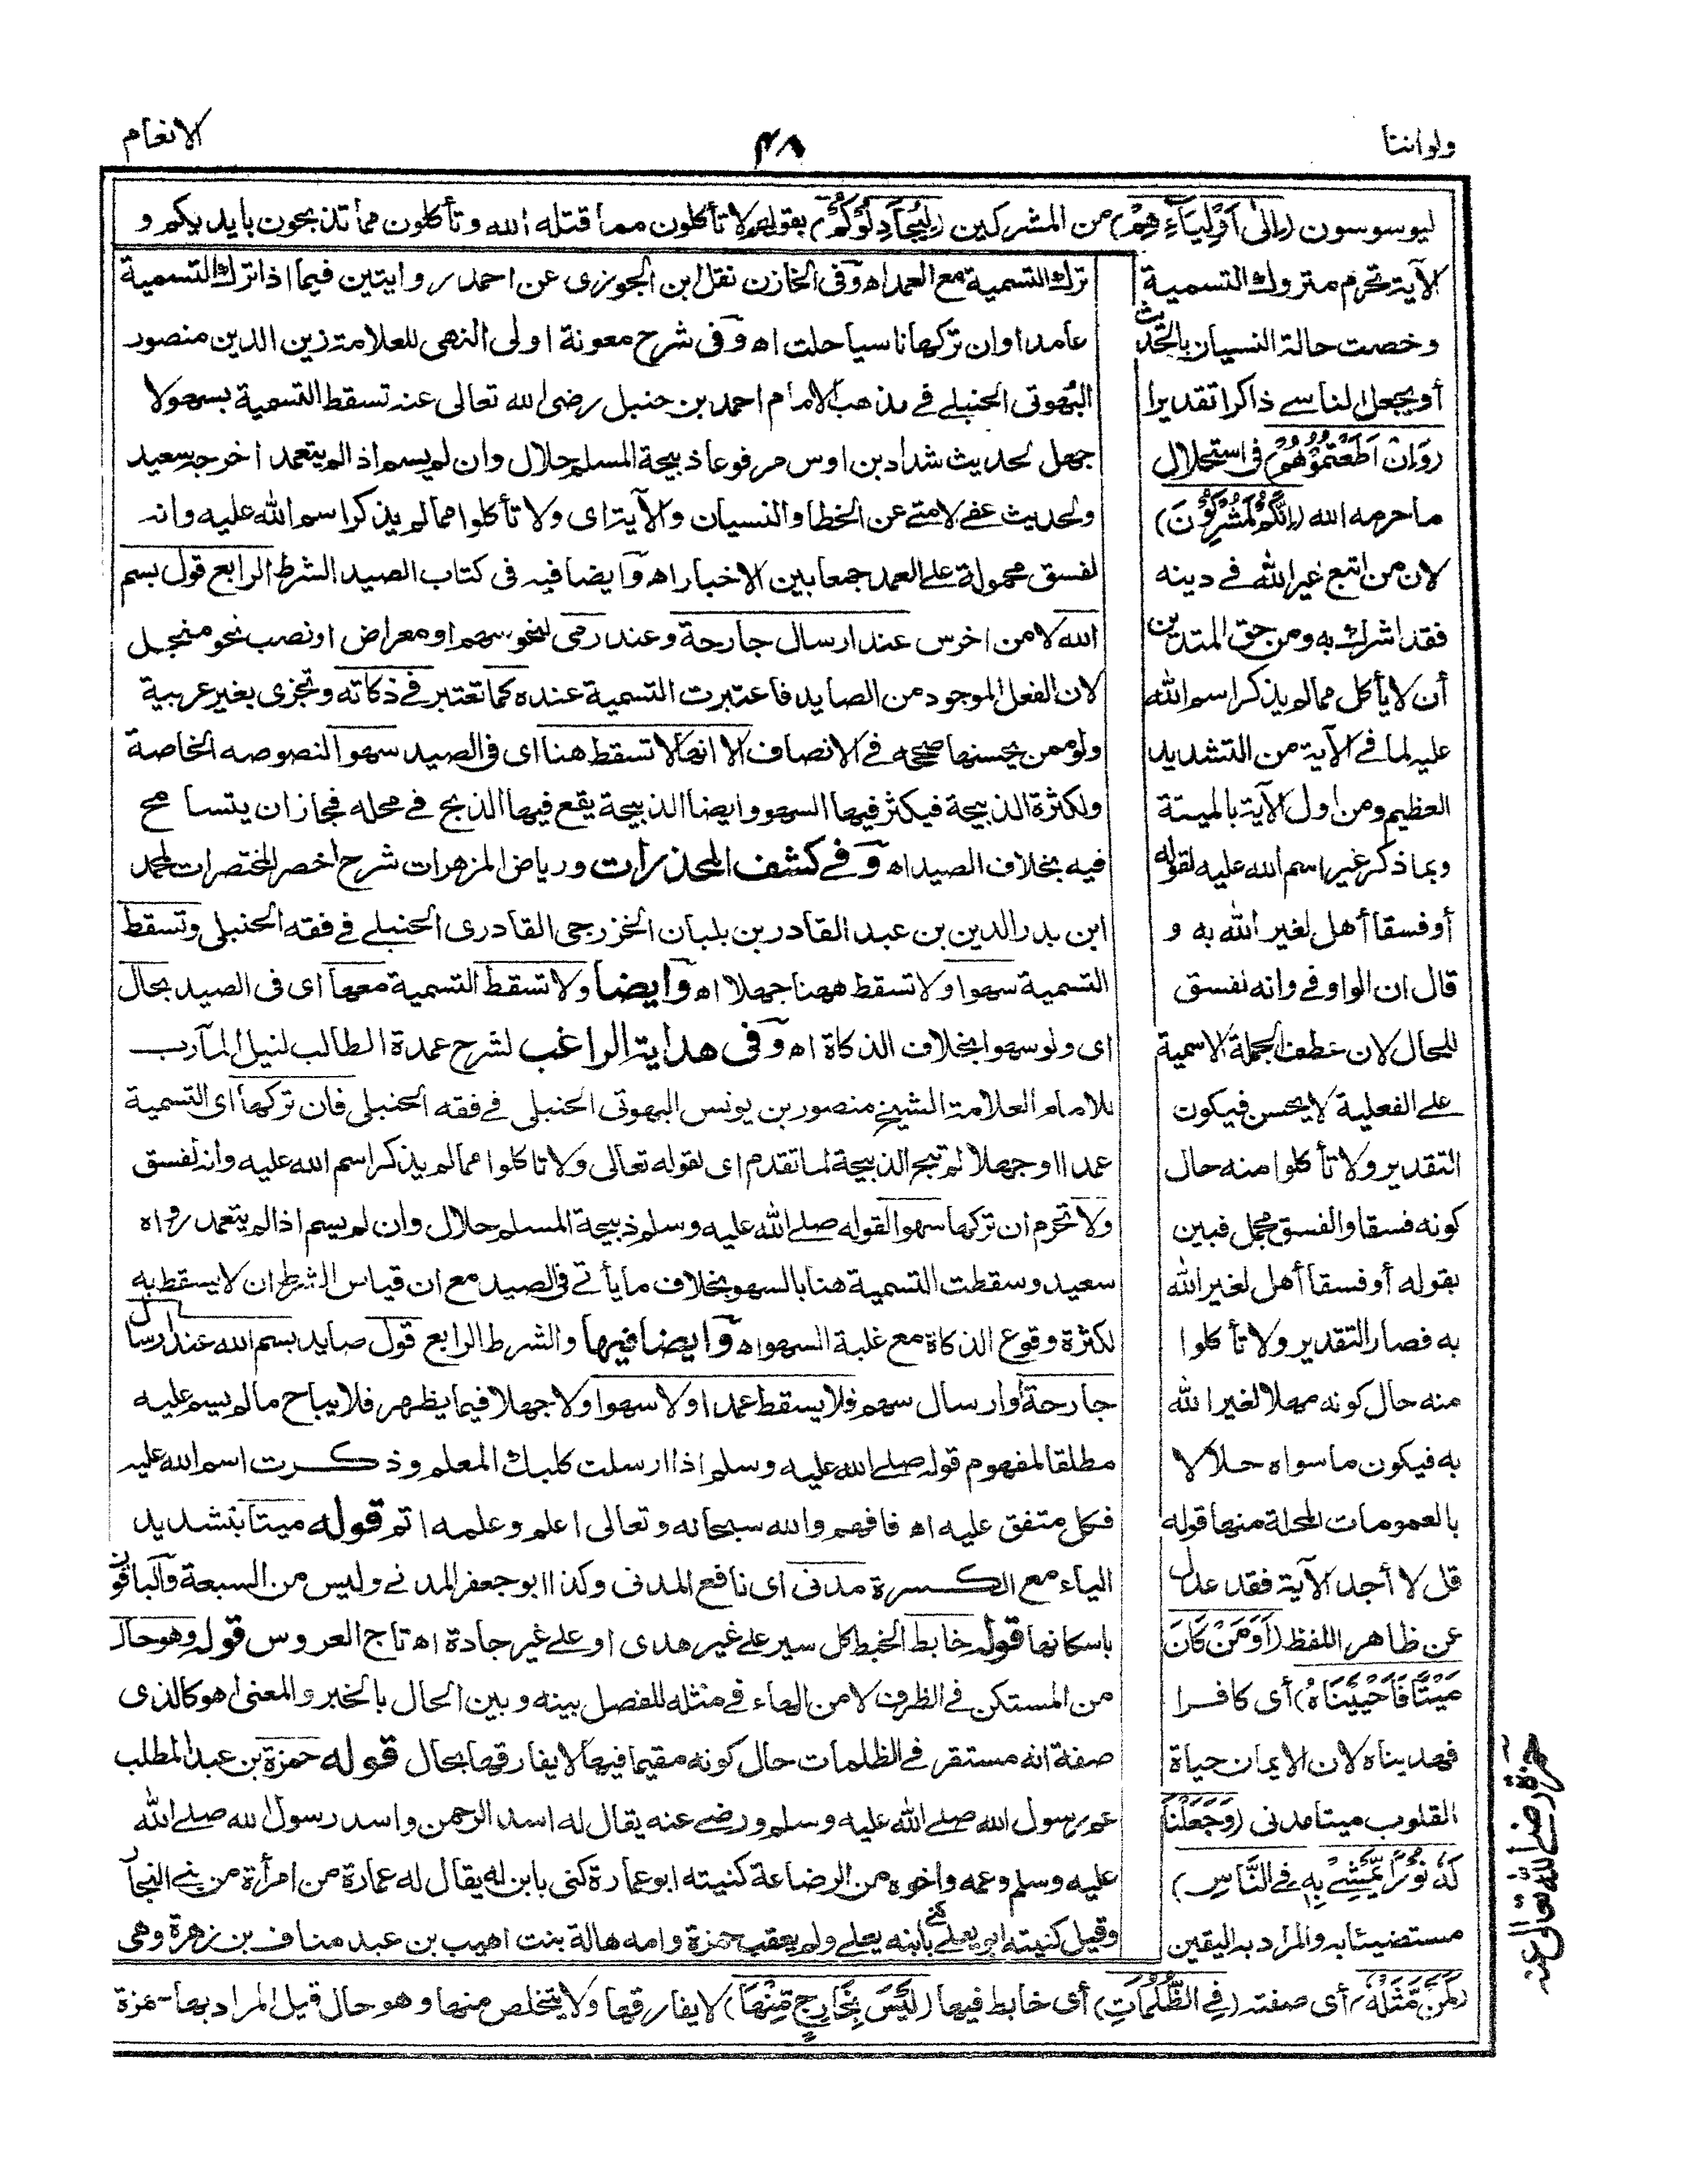 ولواننا
٤٨
الانعام
ليوسوسون (إلىٰ أَوْلِيَآءِهِمْ) من المشركين (لِيُجَادِلُوْكُمْ) بقولهم لا تأكلون مما قتله الله وتأكلون مما تذبحون بايديكم و
الآية تحرم متروك التسمية
وخصت حالة النسيان بالحديث
أو يجعل الناسى ذاكرا تقديرا
(وَإِنْ أَطَعْتُمُوْهُمْ) فى استحلال
ما حرمه الله (إِنَّكُمْ لَمُشْرِكُوْنَ)
لان من اتبع غير الله فى دينه
فقد اشرك به ومن حق المتدين
أن لا يأكل مما لم يذكر اسم الله
عليه لما فى الآية من التشديد
العظيم ومن اول الآية بالميتة
وبما ذكر غير اسم الله عليه لقوله
أو فسقا أهل لغير الله به و
قال ان الواو فى وانه لفسق
للحال لان عطف الجملة الاسمية
على الفعلية لا يحسن فيكون
التقدير ولا تأكلوا منه حال
كونه فسقا والفسق مجمل فبين
بقوله أو فسقا أهل لغير الله
به فصار التقدير ولا تأكلوا
منه حال كونه مهلا لغير الله
به فيكون ما سواه حلالا
بالعمومات المحلة منها قوله
قل لا أجد الآية فقد عدل
عن ظاهر اللفظ (أَوَمَنْ كَانَ
مَيْتًا فَأَحْيَيْنَاهُ) أى كافرا
فهديناه لان الايمان حياة
القلوب ميتا مدنى (وَجَعَلْنَا
لَهٗ نُوْرًا يَّمْشِىْ بِهٖ فِى النَّاسِ)
مستضيئا به والمراد به اليقين
ترك التسمية مع العمد اه وفى الخازن نقل ابن الجوزى عن احمد روايتين فيما اذا ترك التسمية
عامدا وان تركها ناسيا حلت اه وفى شرح معونة اولى النهى للعلامة زين الدين منصور
البُهوتى الحنبلى فى مذهب الامام احمد بن حنبل رضى الله تعالى عنه تسقط التسمية بسهو لا
جهل لحديث شداد بن اوس مرفوعا ذبيحة المسلم حلال وان لم يسم اذا لم يتعمد اخرجه سعيد
ولحديث عفى لامتى عن الخطا والنسيان والآية اى ولا تأكلوا مما لم يذكر اسم الله عليه وانه
لفسق محمولة على العمد جمعا بين الاخبار اه وايضا فيه فى كتاب الصيد الشرط الرابع قول بسم
الله لا من اخرس عند ارسال جارحة وعند رمى لنحو سهم او معراض او نصب نحو منجل
لان الفعل الموجود من الصايد فاعتبرت التسمية عنده كما تعتبر فى ذكاته وتجزى بغير عربية
ولو ممن يحسنها صححه فى الانصاف الا انها لا تسقط هنا اى فى الصيد سهوا لنصوصه الخاصة
ولكثرة الذبيحة فيكثر فيها السهو وايضا الذبيحة يقع فيها الذبح فى محله فجاز ان يتسامح
فيه بخلاف الصيد اه وفى كشف المخدرات ورياض المزهرات شرح اخصر المختصرات لمحمد
ابن بدر الدين بن عبد القادر بن بلبان الخزرجى القادرى الحنبلى فى فقه الحنبلى وتسقط
التسمية سهوا ولا تسقط ههنا جهلا اه وايضا ولا تسقط التسمية معها اى فى الصيد بحال
اى ولو سهوا بخلاف الذكاة اه وفى هداية الراغب لشرح عمدة الطالب لنيل المآرب
للامام العلامة الشيخ منصور بن يونس البهوتى الحنبلى فى فقه الحنبلى فان تركها اى التسمية
عمدا او جهلا لم تبح الذبيحة لما تقدم اى لقوله تعالى ولا تاكلوا مما لم يذكر اسم الله عليه وانه لفسق
ولا تحرم ان تركها سهوا لقوله صلى الله عليه وسلم ذبيحة المسلم حلال وان لم يسم اذا لم يتعمد رواه
سعيد وسقطت التسمية هنا بالسهو بخلاف ما يأتى فى الصيد مع ان قياس الشرط ان لا يسقط به
لكثرة وقوع الذكاة مع غلبة السهو اه وايضا فيها والشرط الرابع قول صايد بسم الله عند ارسال
جارحة أو ارسال سهم فلا يسقط عمدا ولا سهوا ولا جهلا فيما يظهر فلا يباح ما لم يسم عليه
مطلقا لمفهوم قوله صلى الله عليه وسلم اذا ارسلت كلبك المعلم وذكرت اسم الله عليه
فكل متفق عليه اه فافهم والله سبحانه وتعالى اعلم وعلمه اتم قوله ميتا بتشديد
الياء مع الكسرة مدنى اى نافع المدنى وكذا ابو جعفر المدنى وليس من السبعة والباقون
باسكانها قوله خابط الخبط كل سير على غير هدى او على غير جادة اه تاج العروس قوله وهو حال
من المستكن فى الظرف لا من الهاء فى مثله للفصل بينه وبين الحال بالخبر والمعنى اهو كالذى
صفة انه مستقر فى الظلمات حال كونه مقيما فيها لا يفارقها بحال قوله حمزة بن عبد المطلب
عم رسول الله صلى الله عليه وسلم ورضى عنه يقال له اسد الرحمن واسد رسول الله صلى الله
عليه وسلم وعمه واخوه من الرضاعة كنيته ابو عمارة كنى بابن له يقال له عمارة من امرأة من بنى النجار
وقيل كنيته ابو يعلى كنى بابنه يعلى ولم يعقب حمزة وامه هالة بنت اهيب بن عبد مناف بن زهرة وهى
(كَمَنْ مَّثَلُهٗ) أى صفته (فِى الظُّلُمَاتِ) أى خابط فيها (لَيْسَ بِخَارِجٍ مِّنْهَا) لا يفارقها ولا يتخلص منها وهو حال قيل المراد بهما حمزة
حمزة رضى الله تعالى عنه